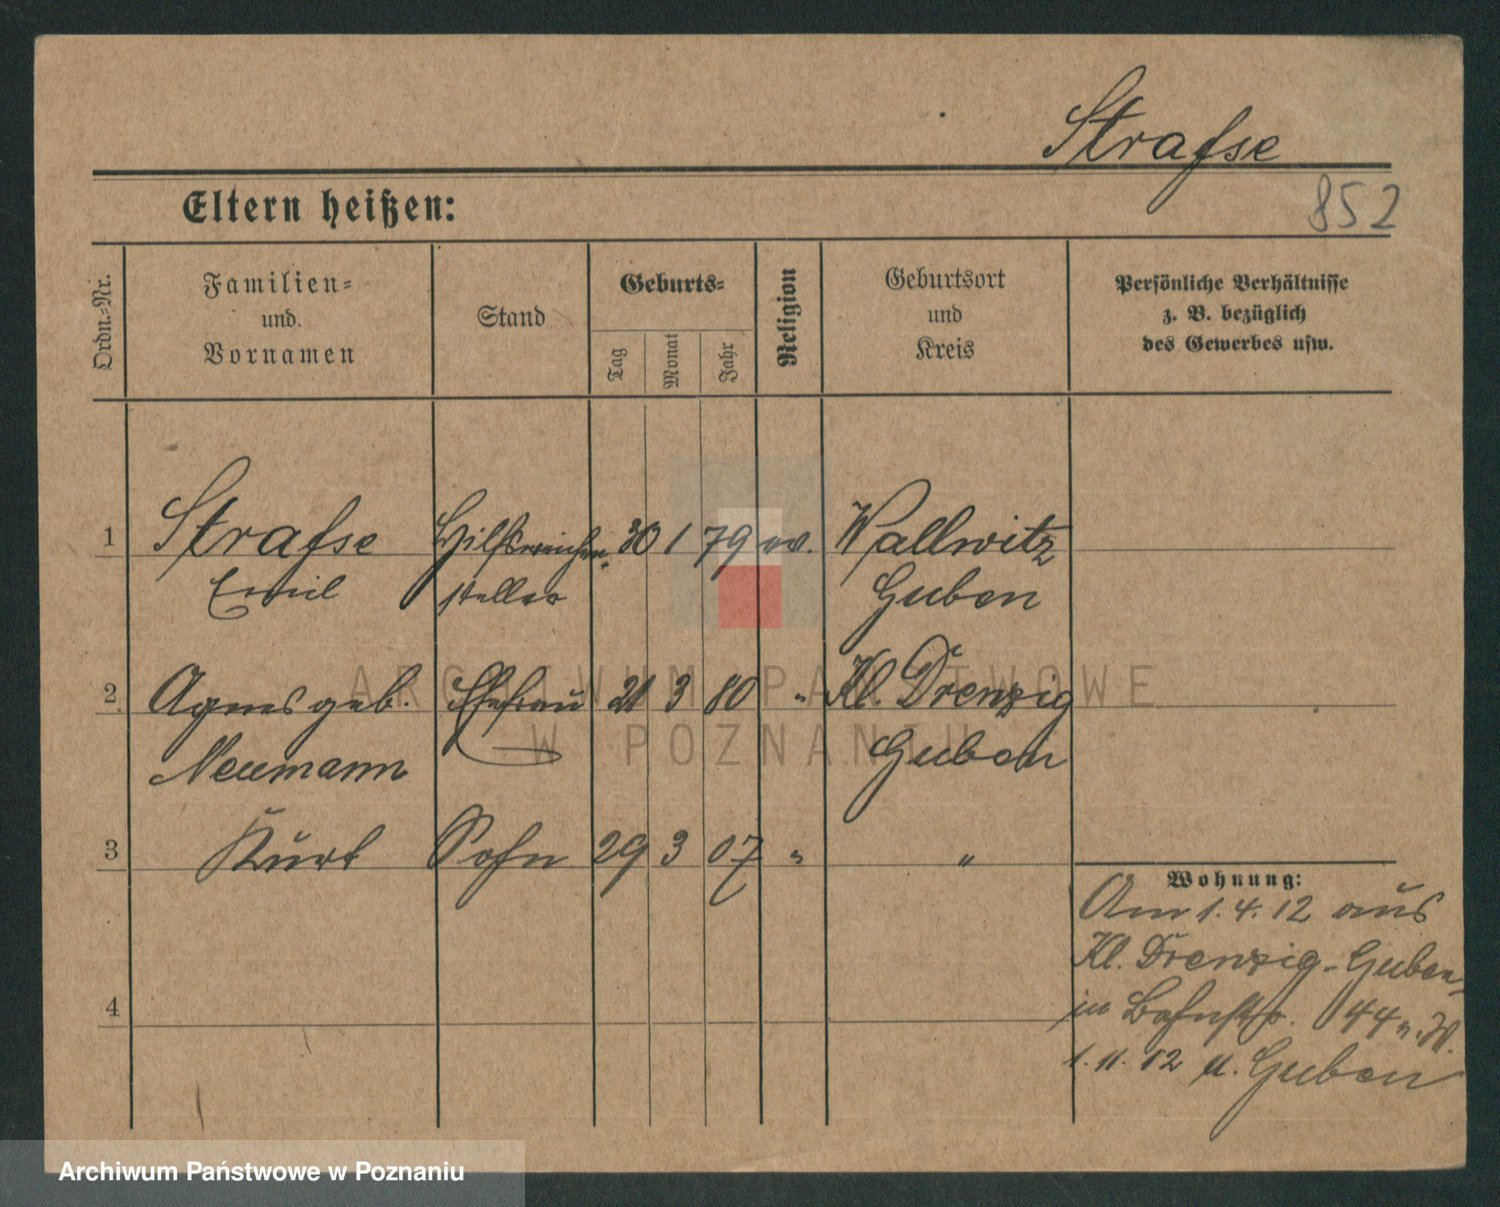 Strafse
852
Eltern heißen:
Ordn.-Nr.
Familien- und Vornamen
Stand
Geburts-
Tag
Monat
Jahr
Religion
Geburtsort und Kreis
Persönliche Verhältnisse
z. B. bezüglich
des Gewerbes usw.
1 Strafse Hilfsweichen- 30 1 79 ev. Wallwitz
Emil steller Guben
2 Agnes geb. Ehefrau 21 3 80 " Kl. Drenzig
Neumann Guben
3 Kurt Sohn 29 3 07 " "
4
Wohnung:
Am 1. 4. 12 aus
Kl. Drenzig-Guben
in Bahnhfstr. 44
1. 11. 12 n. Guben
ARCHIWUM PAŃSTWOWE
W POZNANIU
Archiwum Państwowe w Poznaniu